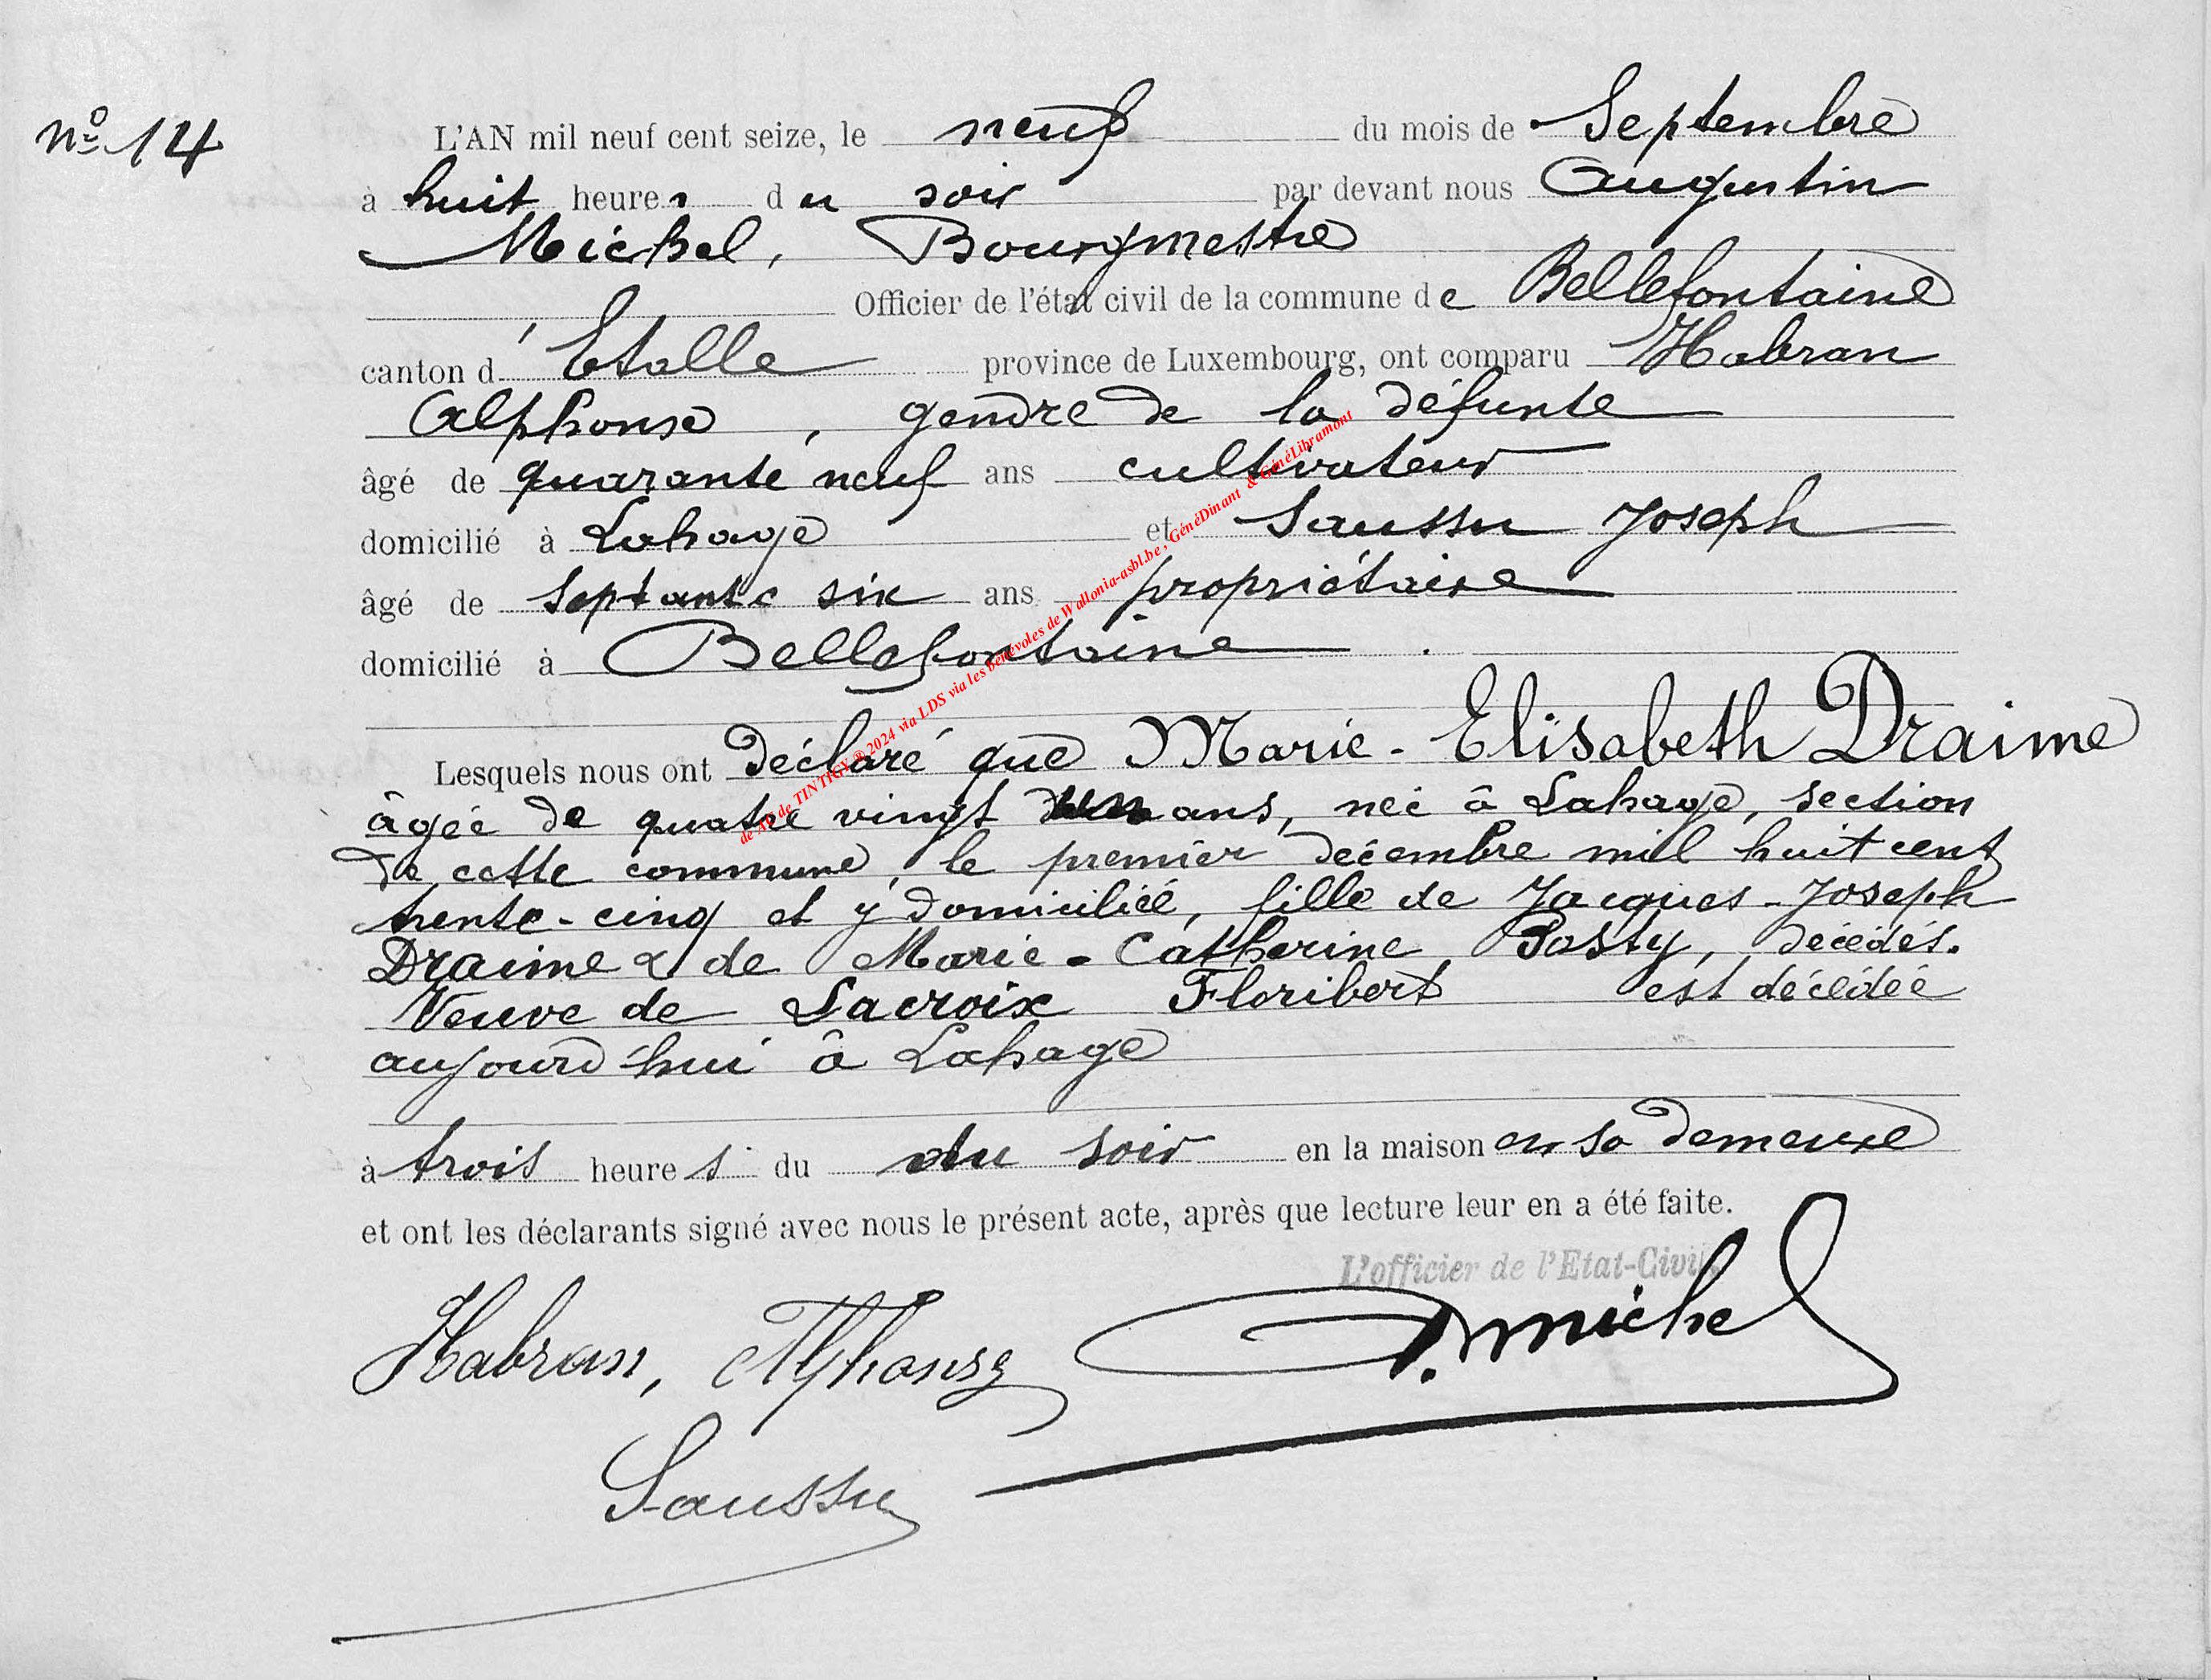 nº 14
L'AN mil neuf cent seize, le neuf du mois de Septembre
à huit heures du soir par devant nous Augustin
Michel, Bourgmestre
Officier de l'état civil de la commune de Bellefontaine
canton d'Etalle province de Luxembourg, ont comparu Habran
Alphonse, gendre de la défunte
âgé de quarante neuf ans cultivateur
domicilié à Lahage et Saussu Joseph
âgé de septante six ans propriétaire
domicilié à Bellefontaine.
Lesquels nous ont déclaré que Marie-Elisabeth Draime
âgée de quatre vingt ans, neé à Lahage, section
de cette commune, le premier décembre mil huit cent
trente-cinq et y domiciliée, fille de Jacques-Joseph
Draime & de Marie-Catherine Posty, décédés.
Veuve de Lacroix Floribert est décédée
aujourd'hui à Lahage
à trois heures du du soir en la maison en sa demeure
et ont les déclarants signé avec nous le présent acte, après que lecture leur en a été faite.
L'officier de l'Etat-Civil,
Habran, Alphonse michel
Saussu
de AE de TINTIGY®2024 via LDS via les bénévoles de Wallonia-asbl.be, GénéDinant & GénéLibramont